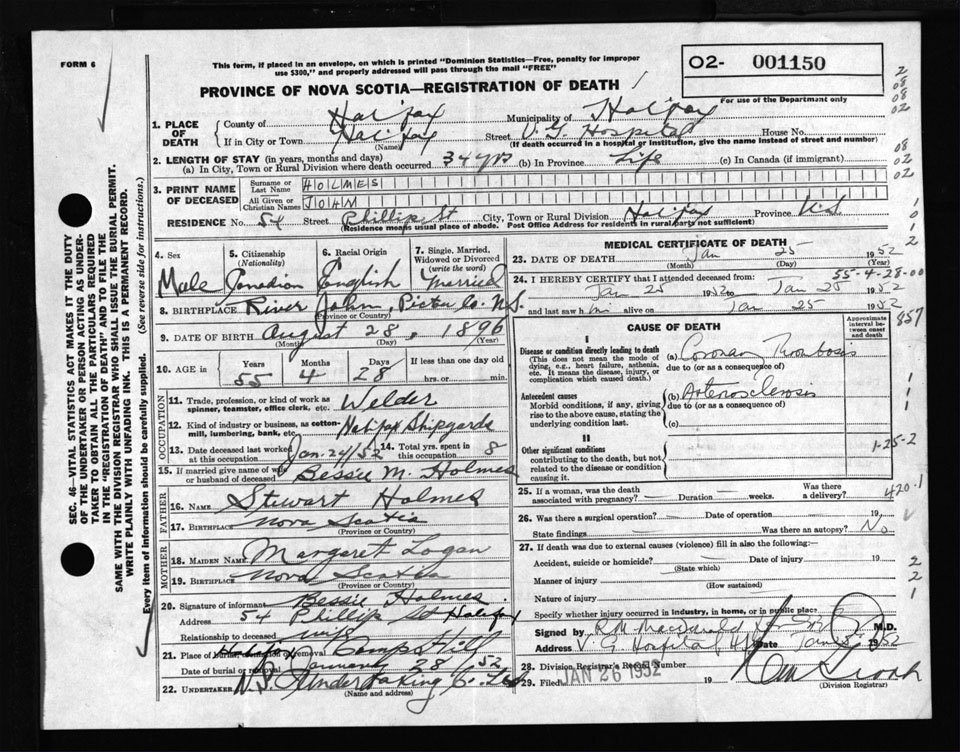 FORM 6
This form, if placed in an envelope, on which is printed "Dominion Statistics—Free, penalty for improper
use $300," and properly addressed will pass through the mail "FREE"
O2- 001150
PROVINCE OF NOVA SCOTIA—REGISTRATION OF DEATH
For use of the Department only
1. PLACE OF DEATH
County of Halifax Municipality of Halifax
If in City or Town Halifax Street V. G. Hospital House No.
(Name) (If death occurred in a hospital or institution, give the name instead of street and number)
2. LENGTH OF STAY (in years, months and days)
(a) In City, Town or Rural Division where death occurred 34 yrs (b) In Province Life (c) In Canada (if immigrant)
3. PRINT NAME OF DECEASED
Surname or Last Name HOLMES
All Given or Christian Names JOHN
RESIDENCE No. 54 Street Phillip St City, Town or Rural Division Halifax Province N.S.
(Residence means usual place of abode. Post Office Address for residents in rural parts not sufficient)
4. Sex Male
5. Citizenship (Nationality) Canadian
6. Racial Origin English
7. Single, Married, Widowed or Divorced (write the word) Married
8. BIRTHPLACE River John, Pictou Co. N.S.
(Province or Country)
9. DATE OF BIRTH August 28, 1896
(Month) (Day) (Year)
10. AGE in Years 55 Months 4 Days 28 If less than one day old
hrs. or min.
OCCUPATION
11. Trade, profession, or kind of work as
spinner, teamster, office clerk, etc. Welder
12. Kind of industry or business, as cotton-
mill, lumbering, bank, etc. Halifax Shipyards
13. Date deceased last worked at this occupation Jan. 24/52 14. Total yrs. spent in this occupation 8
15. If married give name of wife
or husband of deceased Bessie M. Holmes
FATHER
16. NAME Stewart Holmes
17. BIRTHPLACE Nova Scotia
(Province or Country)
MOTHER
18. MAIDEN NAME Margaret Logan
19. BIRTHPLACE Nova Scotia
(Province or Country)
20. Signature of informant Bessie Holmes
Address 54 Phillip St Halifax
Relationship to deceased wife
21. Place of burial, cremation or removal Camp Hill
Date of burial or removal January 28 / 52
22. UNDERTAKER N.S. Undertaking Co. Ltd
(Name and address)
MEDICAL CERTIFICATE OF DEATH
23. DATE OF DEATH Jan 25 1952
(Month) (Day) (Year)
55-4-28-00
24. I HEREBY CERTIFY that I attended deceased from
Jan 25 1952 to Jan 25 1952
and last saw him alive on Jan 25 1952
CAUSE OF DEATH
Approximate interval between onset and death
I
Disease or condition directly leading to death
(This does not mean the mode of
dying, e.g., heart failure, asthenia,
etc. It means the disease, injury, or
complication which caused death.)
(a) Coronary Thrombosis
due to (or as a consequence of)
Antecedent causes
Morbid conditions, if any, giving
rise to the above cause, stating the
underlying condition last.
(b) Arteriosclerosis
due to (or as a consequence of)
(c)
II
Other significant conditions
contributing to the death, but not
related to the disease or condition
causing it.
1-25-2
25. If a woman, was the death
associated with pregnancy? Duration weeks. Was there a delivery?
420.1
26. Was there a surgical operation? Date of operation 19
State findings Was there an autopsy? No
27. If death was due to external causes (violence) fill in also the following:
Accident, suicide or homicide? Date of injury 19
(State which)
Manner of injury
(How sustained)
Nature of injury
Specify whether injury occurred in industry, in home, or in public place
Signed by R. M. MacDonald M.D.
Address V. G. Hospital, Date Jan 1952
28. Division Registrar's Record Number
29. Filed JAN 26 1952 19
(Division Registrar)
SEC. 46—VITAL STATISTICS ACT MAKES IT THE DUTY
OF THE UNDERTAKER OR PERSON ACTING AS UNDER-
TAKER TO OBTAIN ALL THE PARTICULARS REQUIRED
IN THE "REGISTRATION OF DEATH" AND TO FILE THE
SAME WITH THE DIVISION REGISTRAR WHO SHALL ISSUE THE BURIAL PERMIT.
WRITE PLAINLY WITH UNFADING INK. THIS IS A PERMANENT RECORD.
Every item of information should be carefully supplied. (See reverse side for instructions.)